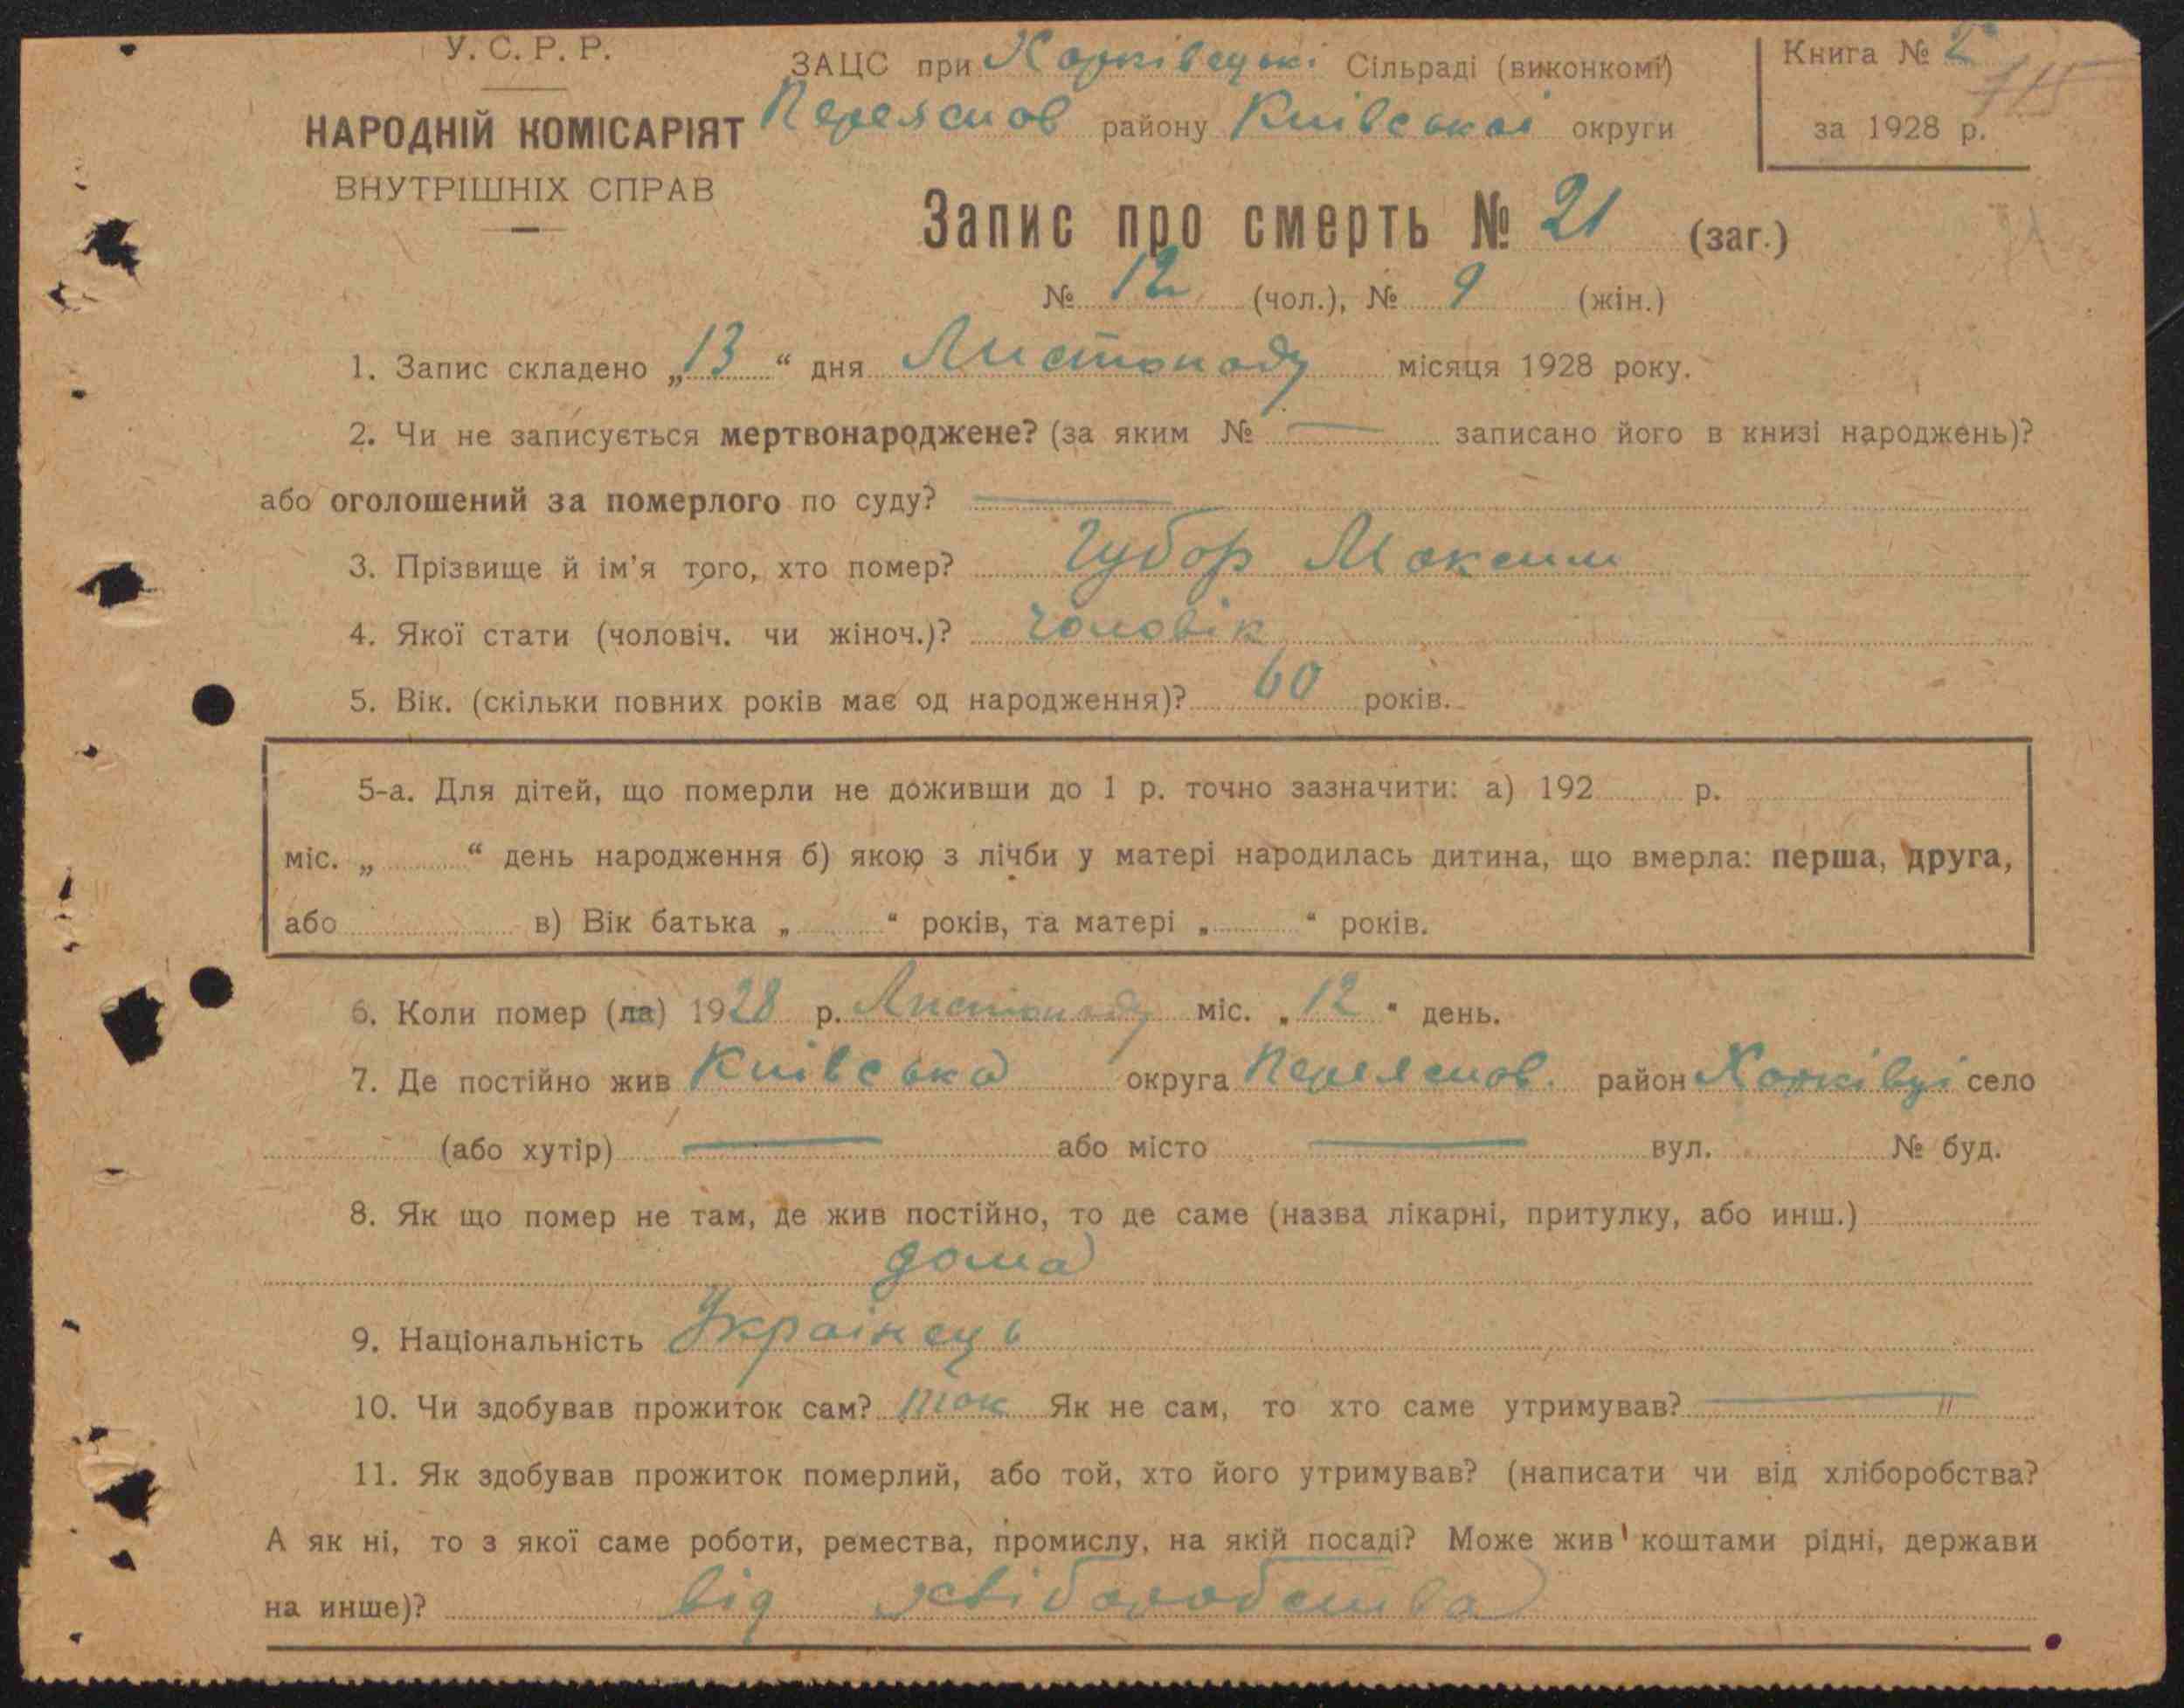 У. С. Р. Р.
НАРОДНІЙ КОМІСАРІЯТ
ВНУТРІШНІХ СПРАВ
ЗАЦС при Харківецькі Сільраді (виконкомі)
Переяслов району Київської округи
Книга №
за 1928 р.
Запис про смерть № 21 (заг.)
№ 12 (чол.), № 9 (жін.)
1. Запис складено „13“ дня Листопаду місяця 1928 року.
2. Чи не записується мертвонароджене? (за яким № — записано його в книзі народжень)?
або оголошений за померлого по суду? —
3. Прізвище й ім'я того, хто помер? Губор Максим
4. Якої стати (чоловіч. чи жіноч.)? чоловік
5. Вік. (скільки повних років має од народження)? 60 років.
5-а. Для дітей, що померли не доживши до 1 р. точно зазначити: а) 192 р.
міс. „ “ день народження б) якою з лічби у матері народилась дитина, що вмерла: перша, друга,
або в) Вік батька „ “ років, та матері „ “ років.
6. Коли помер (ла) 1928 р. Листопаду міс. „12“ день.
7. Де постійно жив Київська округа Переяслов. район Харківці село
(або хутір) — або місто — вул. № буд.
8. Як що помер не там, де жив постійно, то де саме (назва лікарні, притулку, або инш.)
дома
9. Національність Українець
10. Чи здобував прожиток сам? так Як не сам, то хто саме утримував? — "
11. Як здобував прожиток померлий, або той, хто його утримував? (написати чи від хліборобства?
А як ні, то з якої саме роботи, ремества, промислу, на якій посаді? Може жив коштами рідні, держави
на инше)? від хліборобства